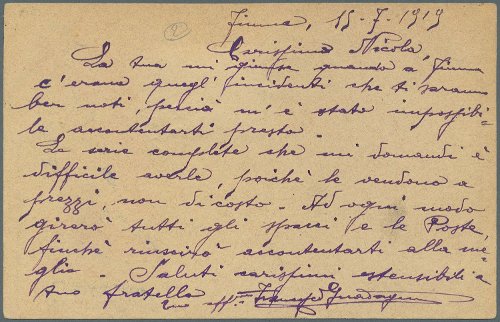 Fiume, 15-7-1919
Carissimo Nicola
La tua mi giunse quando a Fiume
c'erano quegl'incidenti che ti saranno
ben noti, perciò m'è stato impossibi-
le accontentarti presto.
Le serie complete che mi domandi è
difficile averle, poichè le vendono a
prezzi, non di costo. Ad ogni modo
girerò tutti gli spacci e le Poste,
finchè riuscirò accontentarti alla me-
glio. Saluti carissimi estensibili a
tuo fratello aff.